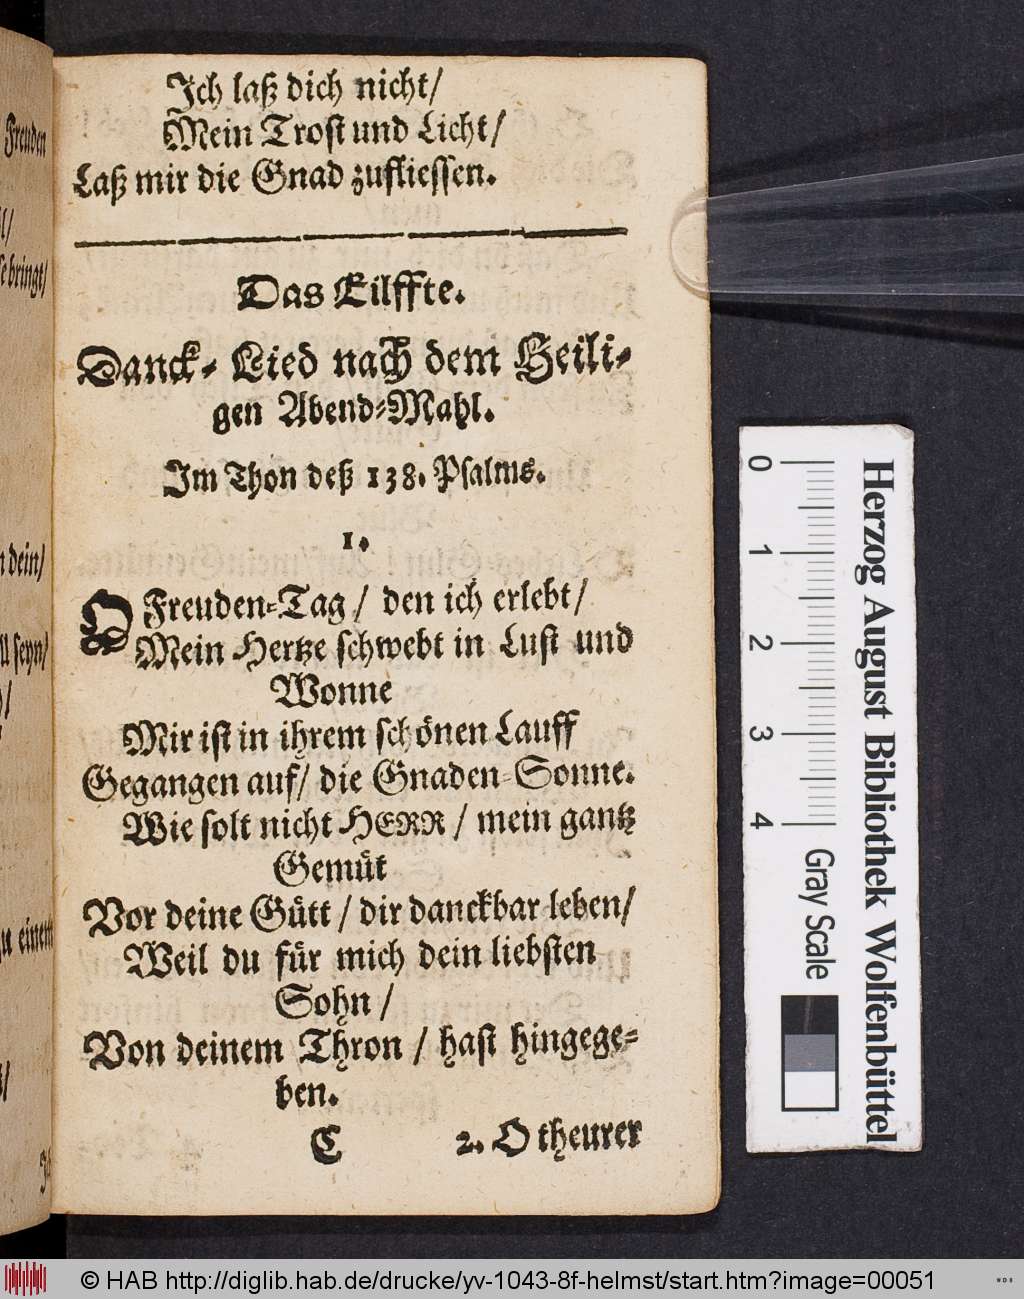 Ich laß dich nicht/
Mein Trost und Licht/
Laß mir die Gnad zufliessen.
Das Eilffte.
Danck- Lied nach dem Heili-
gen Abend-Mahl.
Im Thon deß 138. Psalms.
1.
O Freuden-Tag / den ich erlebt/
Mein Hertze schwebt in Lust und
Wonne
Mir ist in ihrem schönen Lauff
Gegangen auf/ die Gnaden-Sonne.
Wie solt nicht HERR / mein gantz
Gemüt
Vor deine Gütt / dir danckbar leben/
Weil du für mich dein liebsten
Sohn /
Von deinem Thron / hast hingege-
ben.
C 2. O theurer
Freuden
bringt/
dein/
seyn/
einem
0 1 2 3 4
Herzog August Bibliothek Wolfenbüttel
Gray Scale
© HAB http://diglib.hab.de/drucke/yv-1043-8f-helmst/start.htm?image=00051